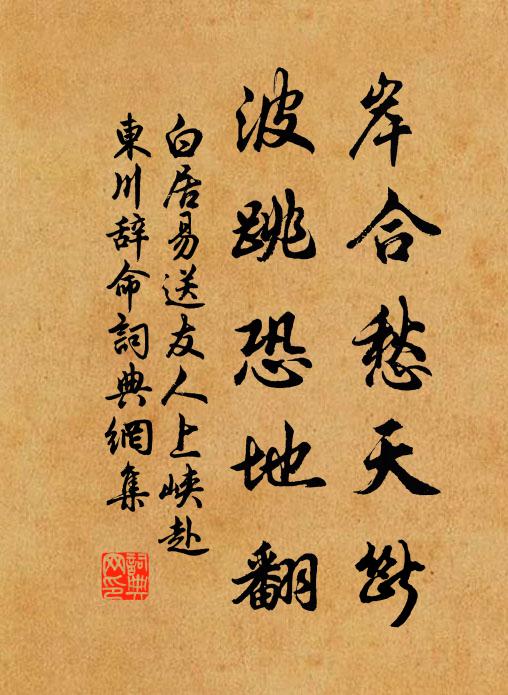 岸合愁天断
波跳恐地翻
白居易送友人上峡赴
東川辞命詞典網集
詞典网印